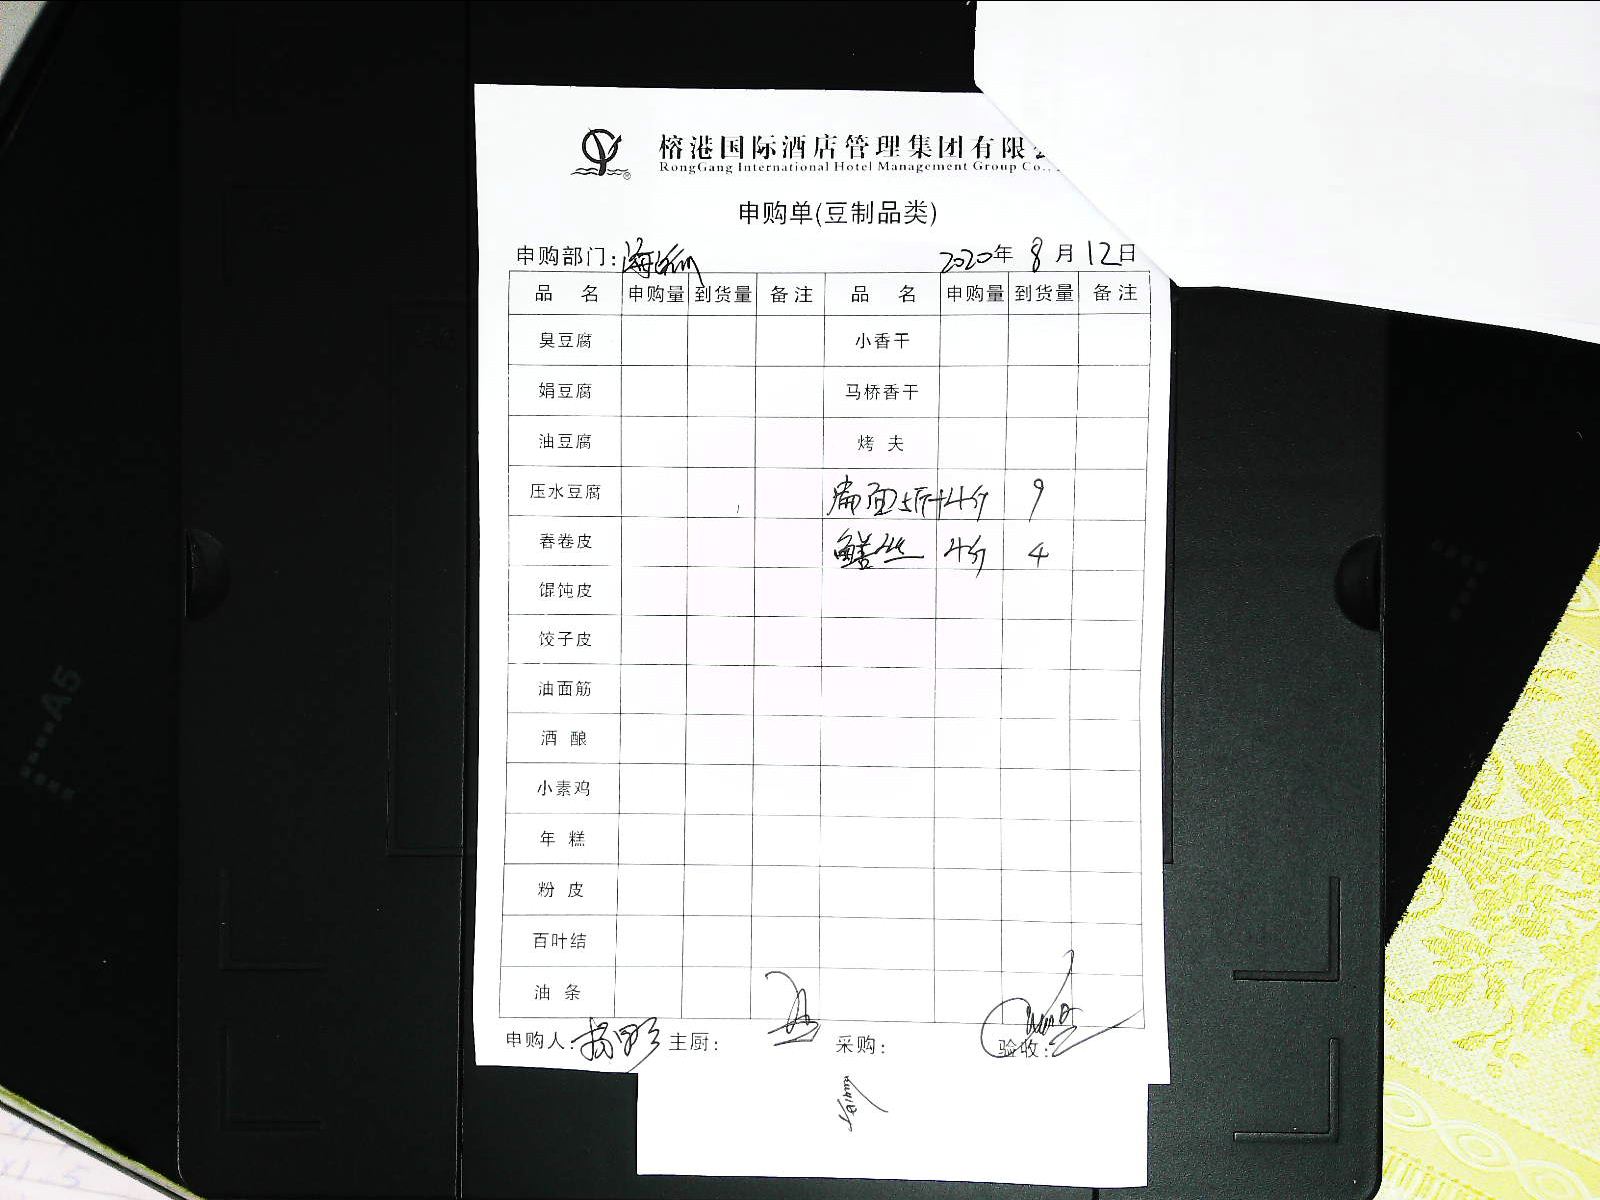 榕港国际酒店管理集团有限
RongGang International Hotel Management Group Co.,
申购单(豆制品类)
申购部门: 2020年 8月 12日
品 名 申购量 到货量 备注 品 名 申购量 到货量 备注
臭豆腐 小香干
娟豆腐 马桥香干
油豆腐 烤 夫
压水豆腐 9
春卷皮 鳝丝 4份 4
馄饨皮
饺子皮
油面筋
酒 酿
小素鸡
年 糕
粉 皮
百叶结
油 条
申购人: 主厨: 采购: 验收:
A5